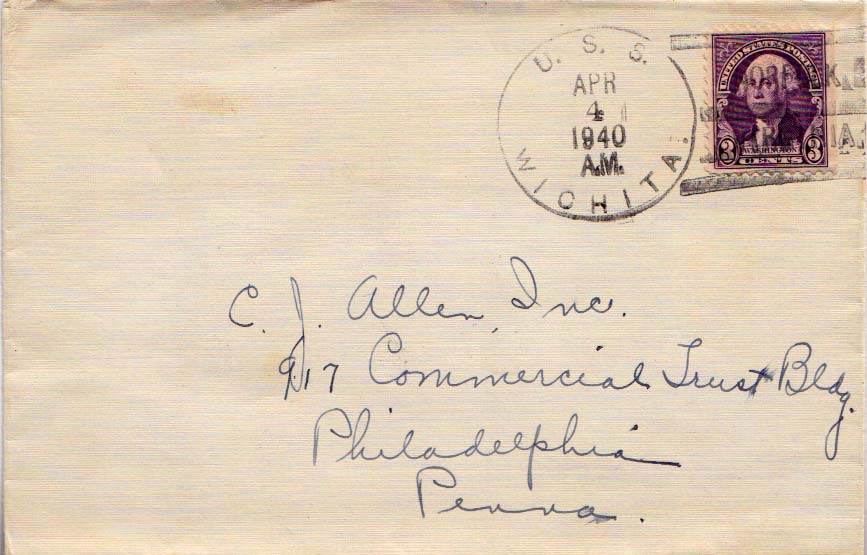 U. S. S.
APR
4
1940
A.M.
WICHITA.
UNITED STATES POSTAGE
WASHINGTON
3 CENTS 3
C. J. Allen, Inc.
917 Commercial Trust Bldg.
Philadelphia
Penna.